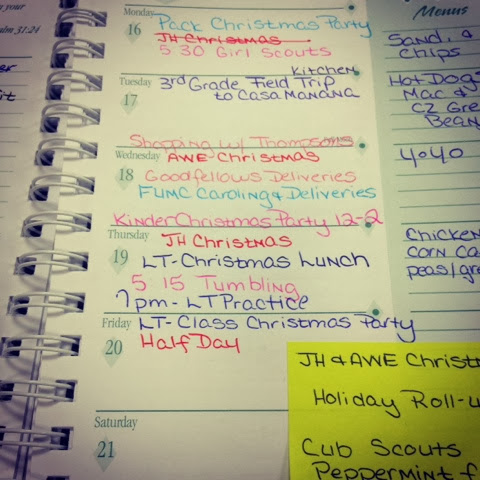 Monday
16
Pack Christmas Party
JH Christmas
5 30 Girl Scouts
Kitchen
Tuesday
17
3rd Grade Field Trip
to Casa Manana
Shopping w/ Thompsons
Wednesday
18
AWE Christmas
Goodfellows Deliveries
FUMC Caroling & Deliveries
Kinder Christmas Party 12-2
Thursday
19
JH Christmas
LT-Christmas Lunch
5 15 Tumbling
7pm - LT Practice
Friday
20
LT-Class Christmas Party
Half Day
Saturday
21
Menus
Sand. &
Chips
Hot Dogs
Mac &
CZ Gre
Bean
YOYO
Chicken
corn Ca
peas/gre
JH & AWE Christ
Holiday Roll-u
Cub Scouts
Peppermint f
e your
alm 31:21
er
it